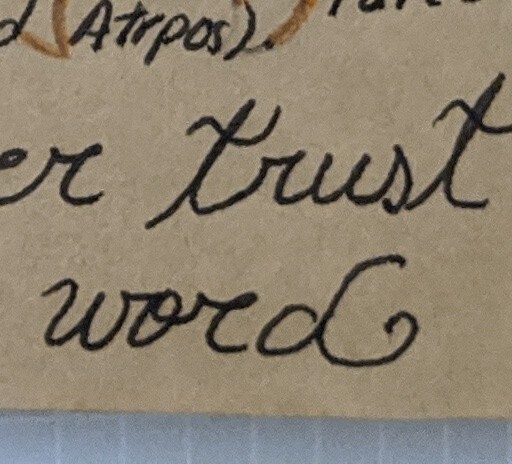 (Atrpos).
er trust
word